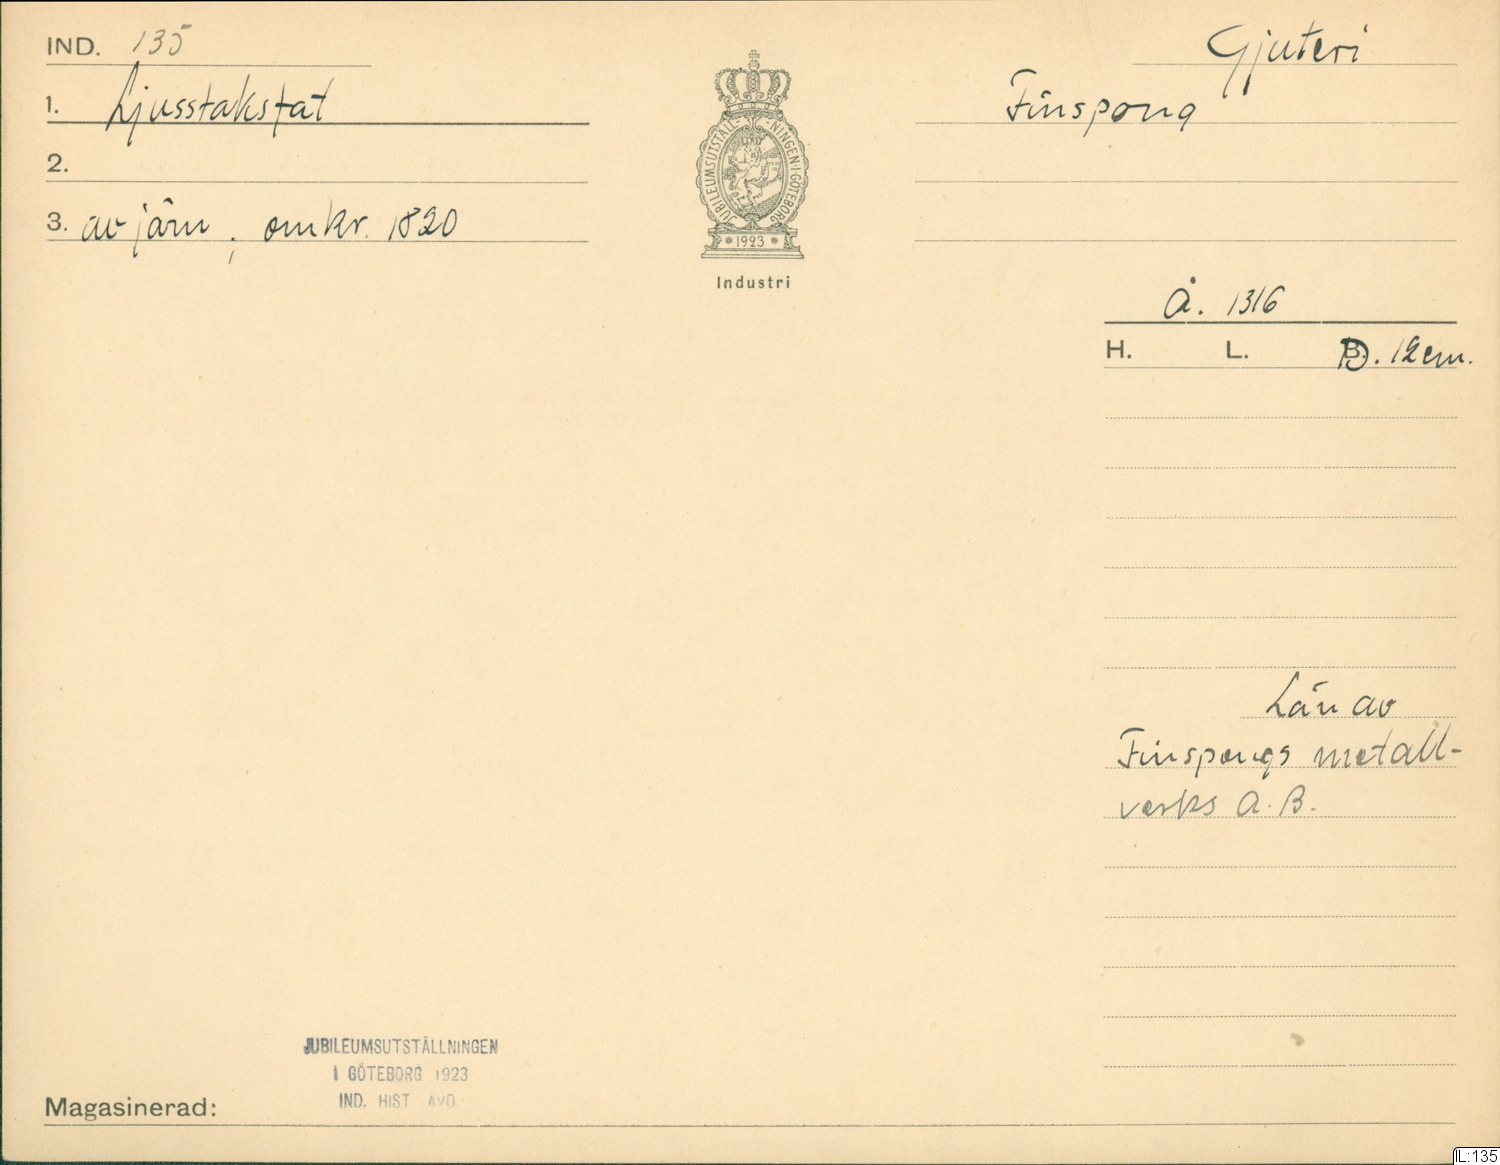 IND. 135
Gjuteri
1. Ljusstaksfat
Finspong
2.
3. av järn, omkr. 1820
JUBILEUMSUTSTÄLL-NINGEN·I·GÖTEBORG
1923
Industri
Å. 1316
H. L. D. 12 cm.
Lån av
Finspongs metall-
verks A.B.
JUBILEUMSUTSTÄLLNINGEN
I GÖTEBORG 1923
IND. HIST AVD.
Magasinerad:
IL:135